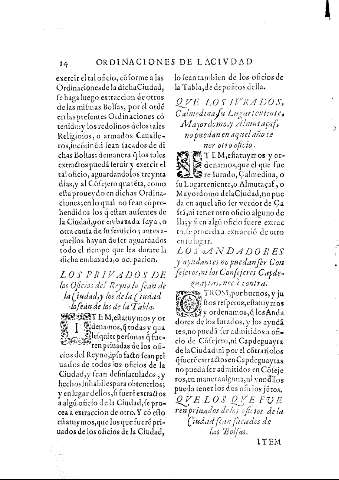 14 ORDINACIONES DE LACIVDAD
exercir el tal oficio, cōforme a las
Ordinaciones de la dicha Ciudad,
se haga luego extraccion de otros
de las mismas Bolsas, por el ordē
en las presentes Ordinaciones cō
tenido: y los redolinos de los tales
Religiosos, o armados Cavalle-
ros, incōtinēti sean sacados de di
chas Bolsas: de manera q̃ los tales
extractos pueda servir y exercir el
tal oficio, aguardandolos treynta
dias, y al Cōsejero quatro, como
está proveydo en dichas Ordina-
ciones, en lo qual no sean cōpre-
hendidos los q̃ estan ausentes de
la Ciudad, por embaxada suya, o
otra causa de su servicio; antes a-
quellos hayan de ser aguardados
todo el tiempo que les durare la
dicha embaxada, o ocupacion.
LOS PRIVADOS DE
los Oficios del Reyno lo sean de
la Ciudad, y los de la Ciudad
lo sean de los de la Tabla.
ITEM, estatuymos y or
denamos, q̃ todas y qua
lesquiere personas q̃ fue-
ren privadas de los ofi-
cios del Reyno, ipso facto sean pri-
vados de todos los oficios de la
Ciudad, y sean desinsaculados, y
hechos inhabiles para obtenerlos;
y en lugar dellos, si fuere extracto
a algū oficio de la Ciudad, se pro-
cea a extraccion de otro. Y cō esto
estatuymos, que los que fuerē pri-
uados de los oficios de la Ciudad,
lo sean tambien de los oficios de
la Tabla, de depositos della.
QVE LOS IVRADOS,
Calmedina, su Lugarteniente,
Mayordomo, y Almutaçaf,
no puedan en aquel año te
ner otro oficio.
ITEM, estatuymos y or-
denamos, que el que fue
re Iurado, Calmedina, o
su Lugarteniente, o Almutaçaf, o
Mayordomo de la Ciudad, no pue
da en aquel año ser veedor de Ca-
rtas, ni tener otro oficio alguno de
llas; y si en algū oficio fuere extrac
to, se proceda a extracciō de otro
en su lugar.
LOS ANDADORES
y ayudantes no puedan ser Con
sejeros, ni los Consejeros Capde-
guaytas, nec è contra.
OTROSI, por buenos, y ju
stos respectos, estatuymos
y ordenamos, q̃ los Anda
dores de los Iurados, y los ayudā
tes, no puedan ser admitidos a ofi-
cio de Cōsejero, ni Capdeguayta
de la Ciudad: ni por el contrario los
q̃ fuerē extractos en Capdeguaytas
no pueda ser admitidos en Cōseje
ros, en manera alguna, ni vno dellos
pueda tener los dos oficios jūtos.
QVE LOS QVE FVE
ren privados de los oficios de la
Ciudad sean sacados de
las Bolsas.
ITEM